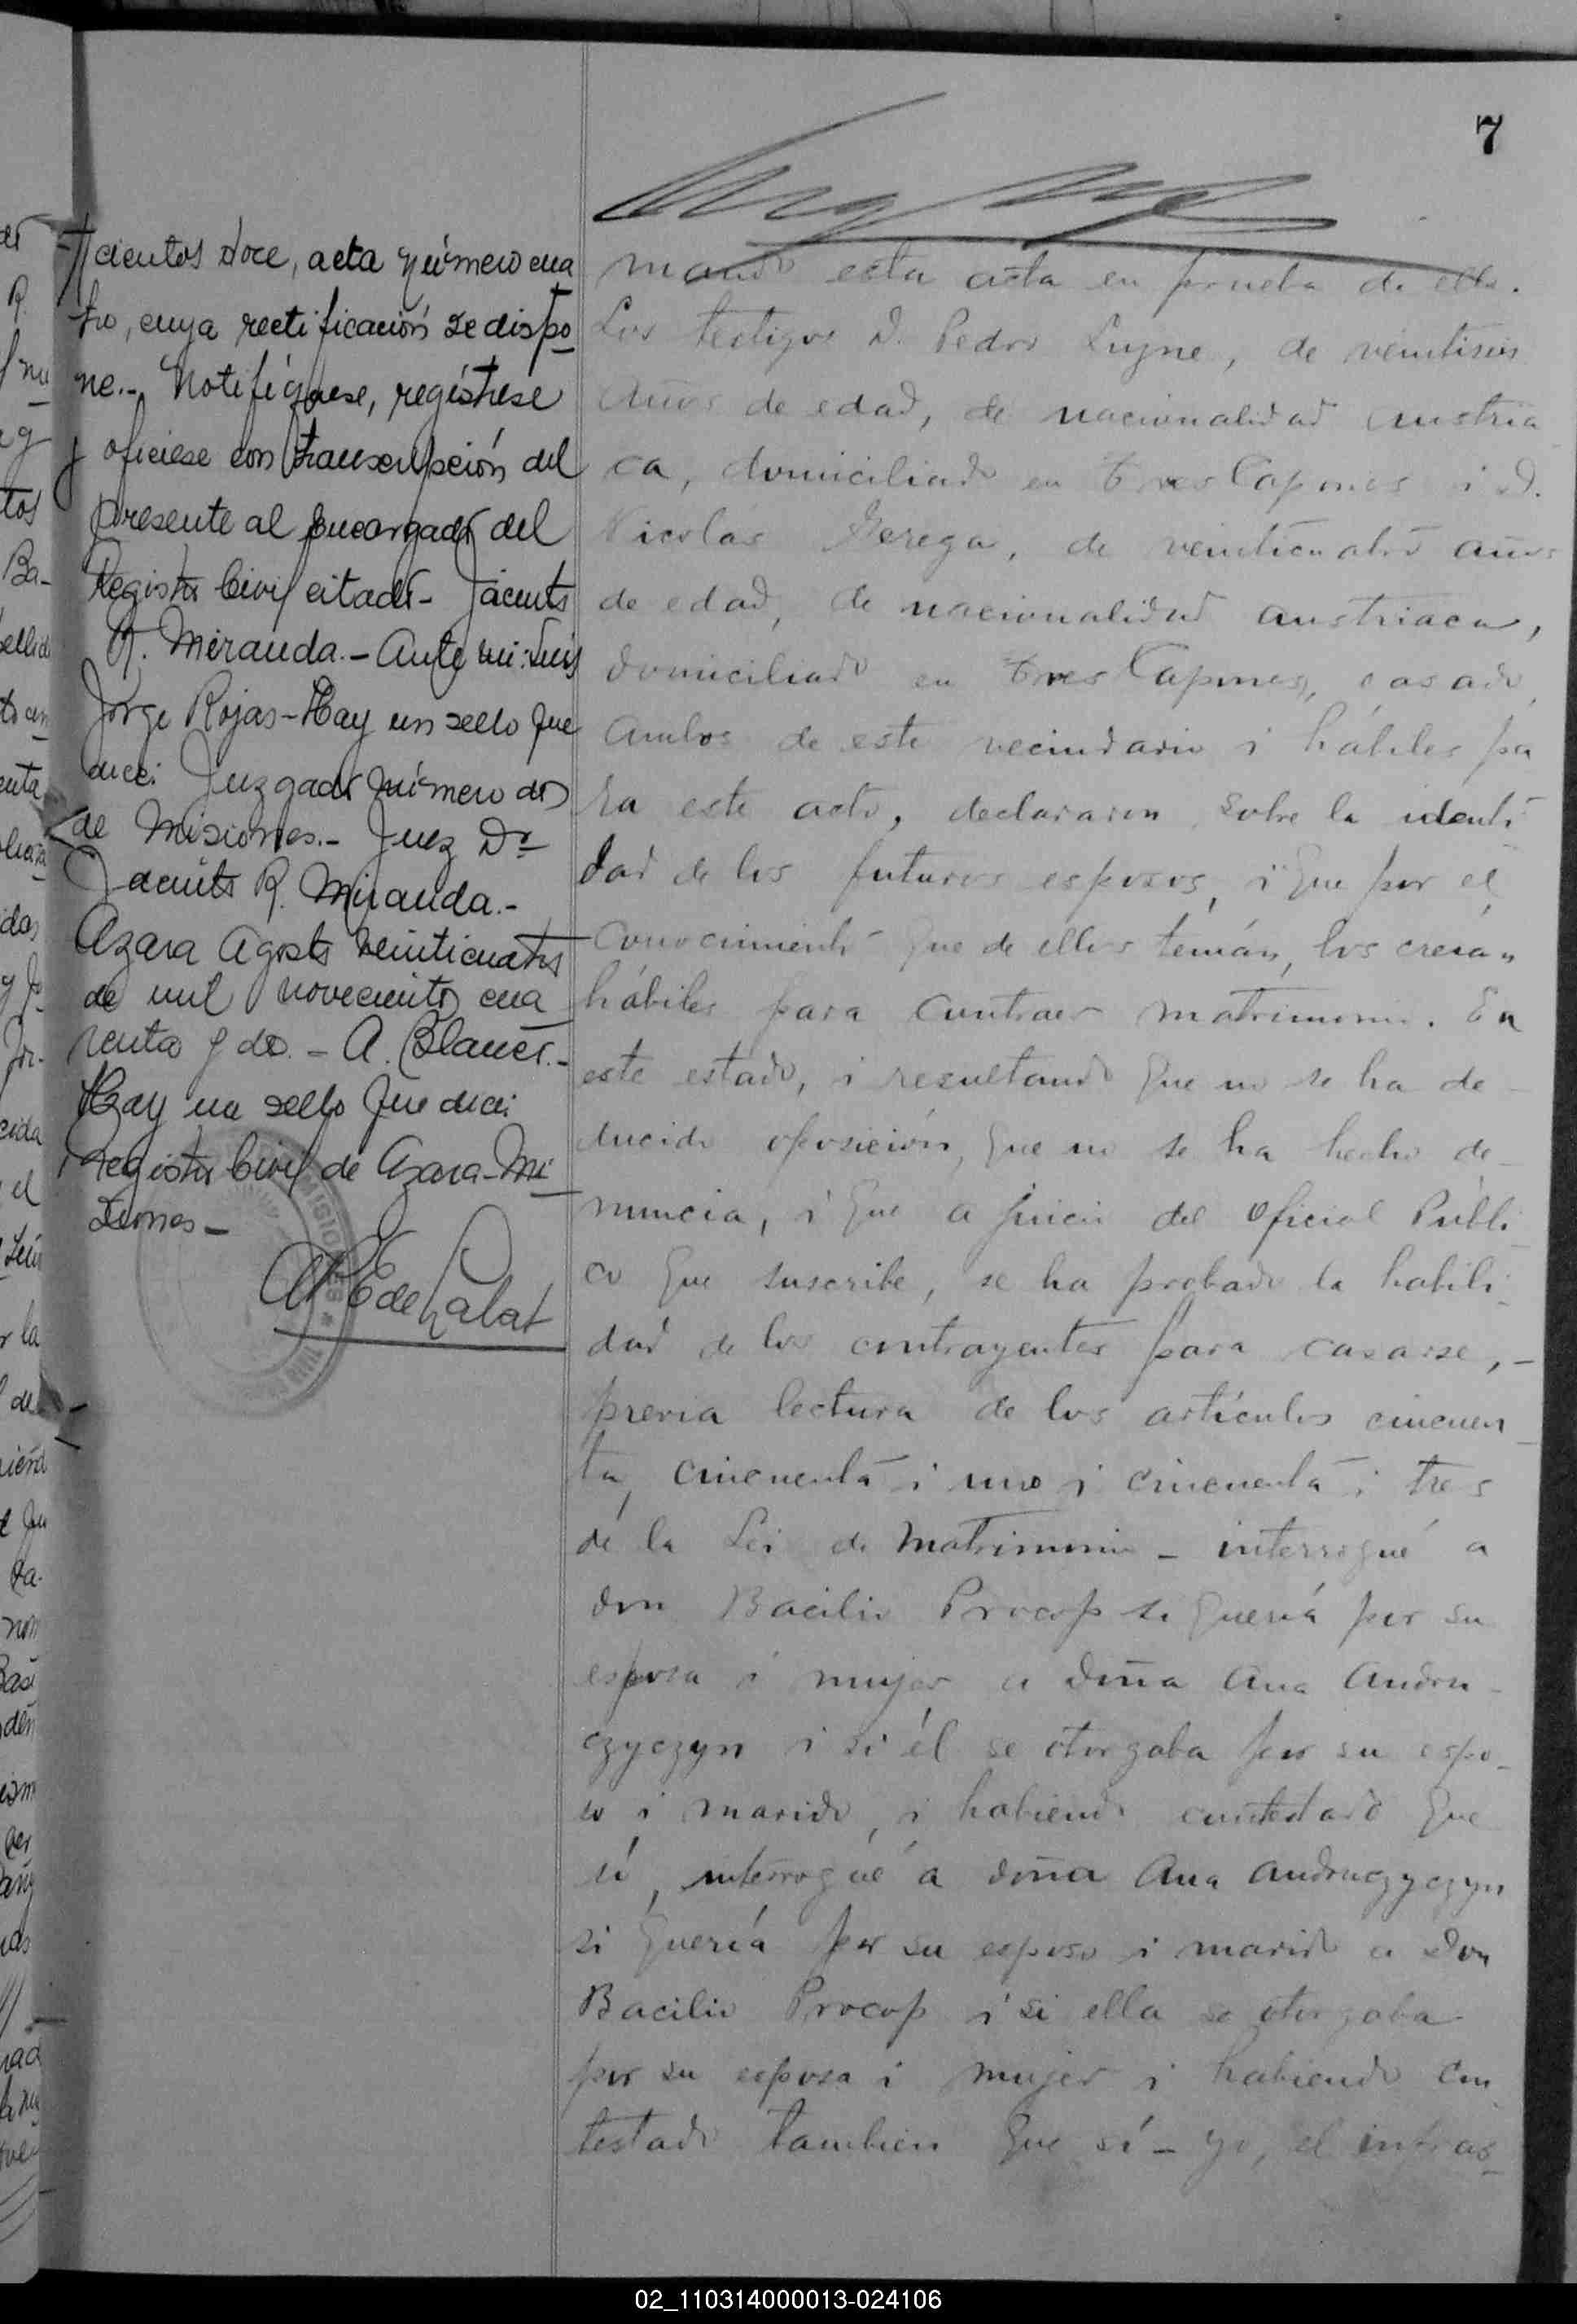 7
cientos doce, acta número cua
tro, cuya rectificación se dispo
ne.- Notifíquese, regístrese
y ofíciese con transcripción del
presente al Encargado del
Registro Civil citado- Jacinto
R. Miranda.- Ante mi: Luis
Jorge Rojas- Hay un sello que
dice: Juzgado número dos
de Misiones.- Juez Dr
Jacinto R. Miranda.-
Azara Agosto veinticuatro
de mil novecientos cua
renta y dos.- A. Blanes.-
Hay un sello que dice:
Registro Civil de Azara-Mi
siones-
mando esta acta en prueba de ello.
Los testigos D. Pedro Luyne, de veintiseis
años de edad, de nacionalidad austria
ca, domiciliado en Tres Capones i D.
Nicolás Gerega, de veinticuatro años
de edad, de nacionalidad austriaca,
domiciliado en Tres Capones, casado,
ambos de este vecindario i hábiles pa
ra este acto, declararon sobre la identi
dad de los futuros esposos, i que por el
conocimiento que de ellos tenían, los creían
hábiles para contraer matrimonio. En
este estado, i resultando que no se ha de-
ducido oposición, que no se ha hecho de-
nuncia, i que a juicio del Oficial Públi
co que suscribe, se ha probado la habili
dad de los contrayentes para casarse,-
previa lectura de los artículos cincuen
ta, cincuenta i uno i cincuenta i tres
de la Lei de Matrimonio- interrogué a
don Bacilio Procop si quería por su
esposa i mujer a doña Ana Andru-
czyczyn i si él se otorgaba por su espo-
so i marido, i habiendo contestado que
sí, interrogué a doña Ana Andruczyczyn
si quería por su esposo i marido a don
Bacilio Procop i si ella se otorgaba
por su esposa i mujer i habiendo con
testado tambien que sí- yo, el infras-
02_110314000013-024106